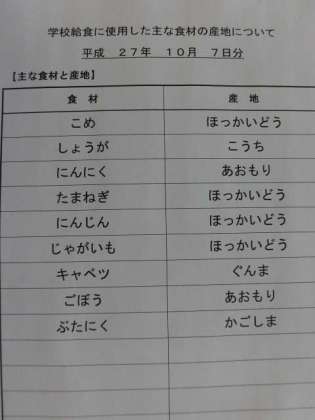 学校給食に使用した主な食材の産地について
平成 27年 10月 7日分
【主な食材と産地】
食 材 産 地
こめ ほっかいどう
しょうが こうち
にんにく あおもり
たまねぎ ほっかいどう
にんじん ほっかいどう
じゃがいも ほっかいどう
キャベツ ぐんま
ごぼう あおもり
ぶたにく かごしま